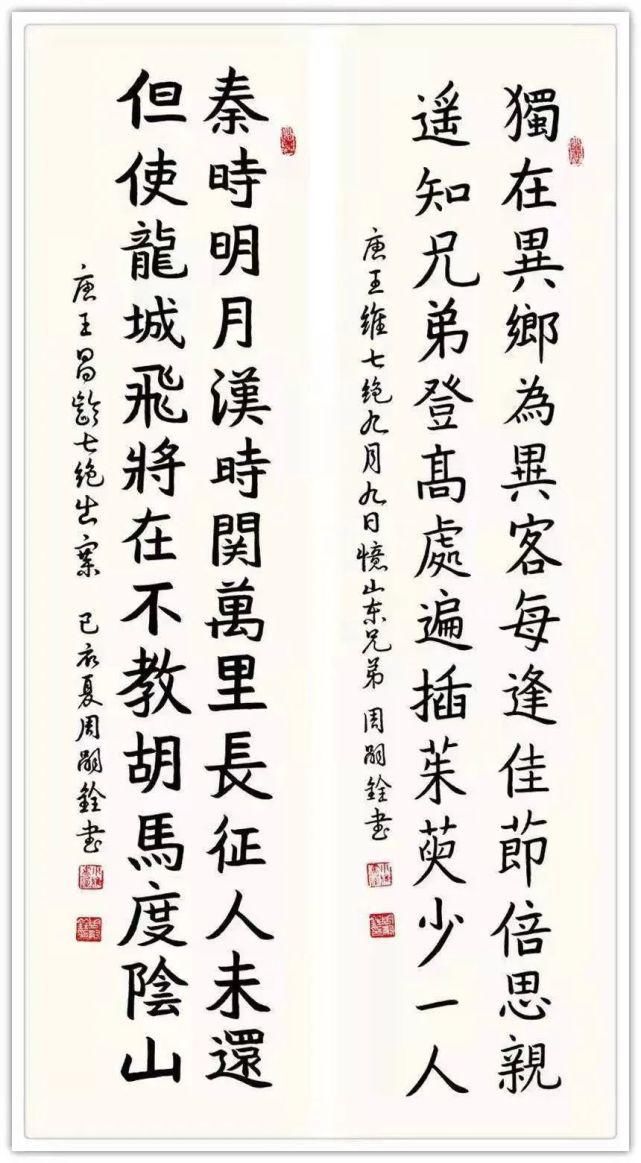 獨在異鄉為異客每逢佳節倍思親
遥知兄弟登高處遍插茱萸少一人
唐王維七绝九月九日憶山东兄弟 周嗣銓书
秦時明月漢時関萬里長征人未還
但使龍城飛將在不教胡馬度陰山
唐王昌齡七绝出塞 己亥夏周嗣銓书